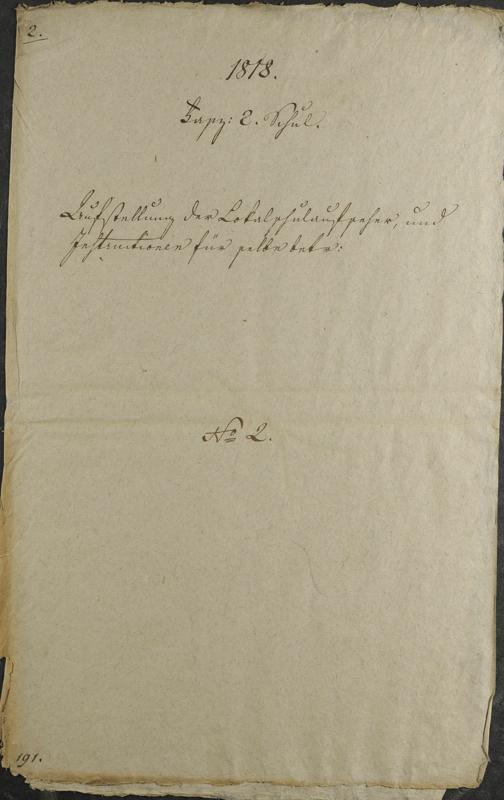 2.
1818.
Fasz: 2. Schul.
Aufstellung der Lokalschulaufseher, und
Instructionen für selbe betr:
No 2.
191.